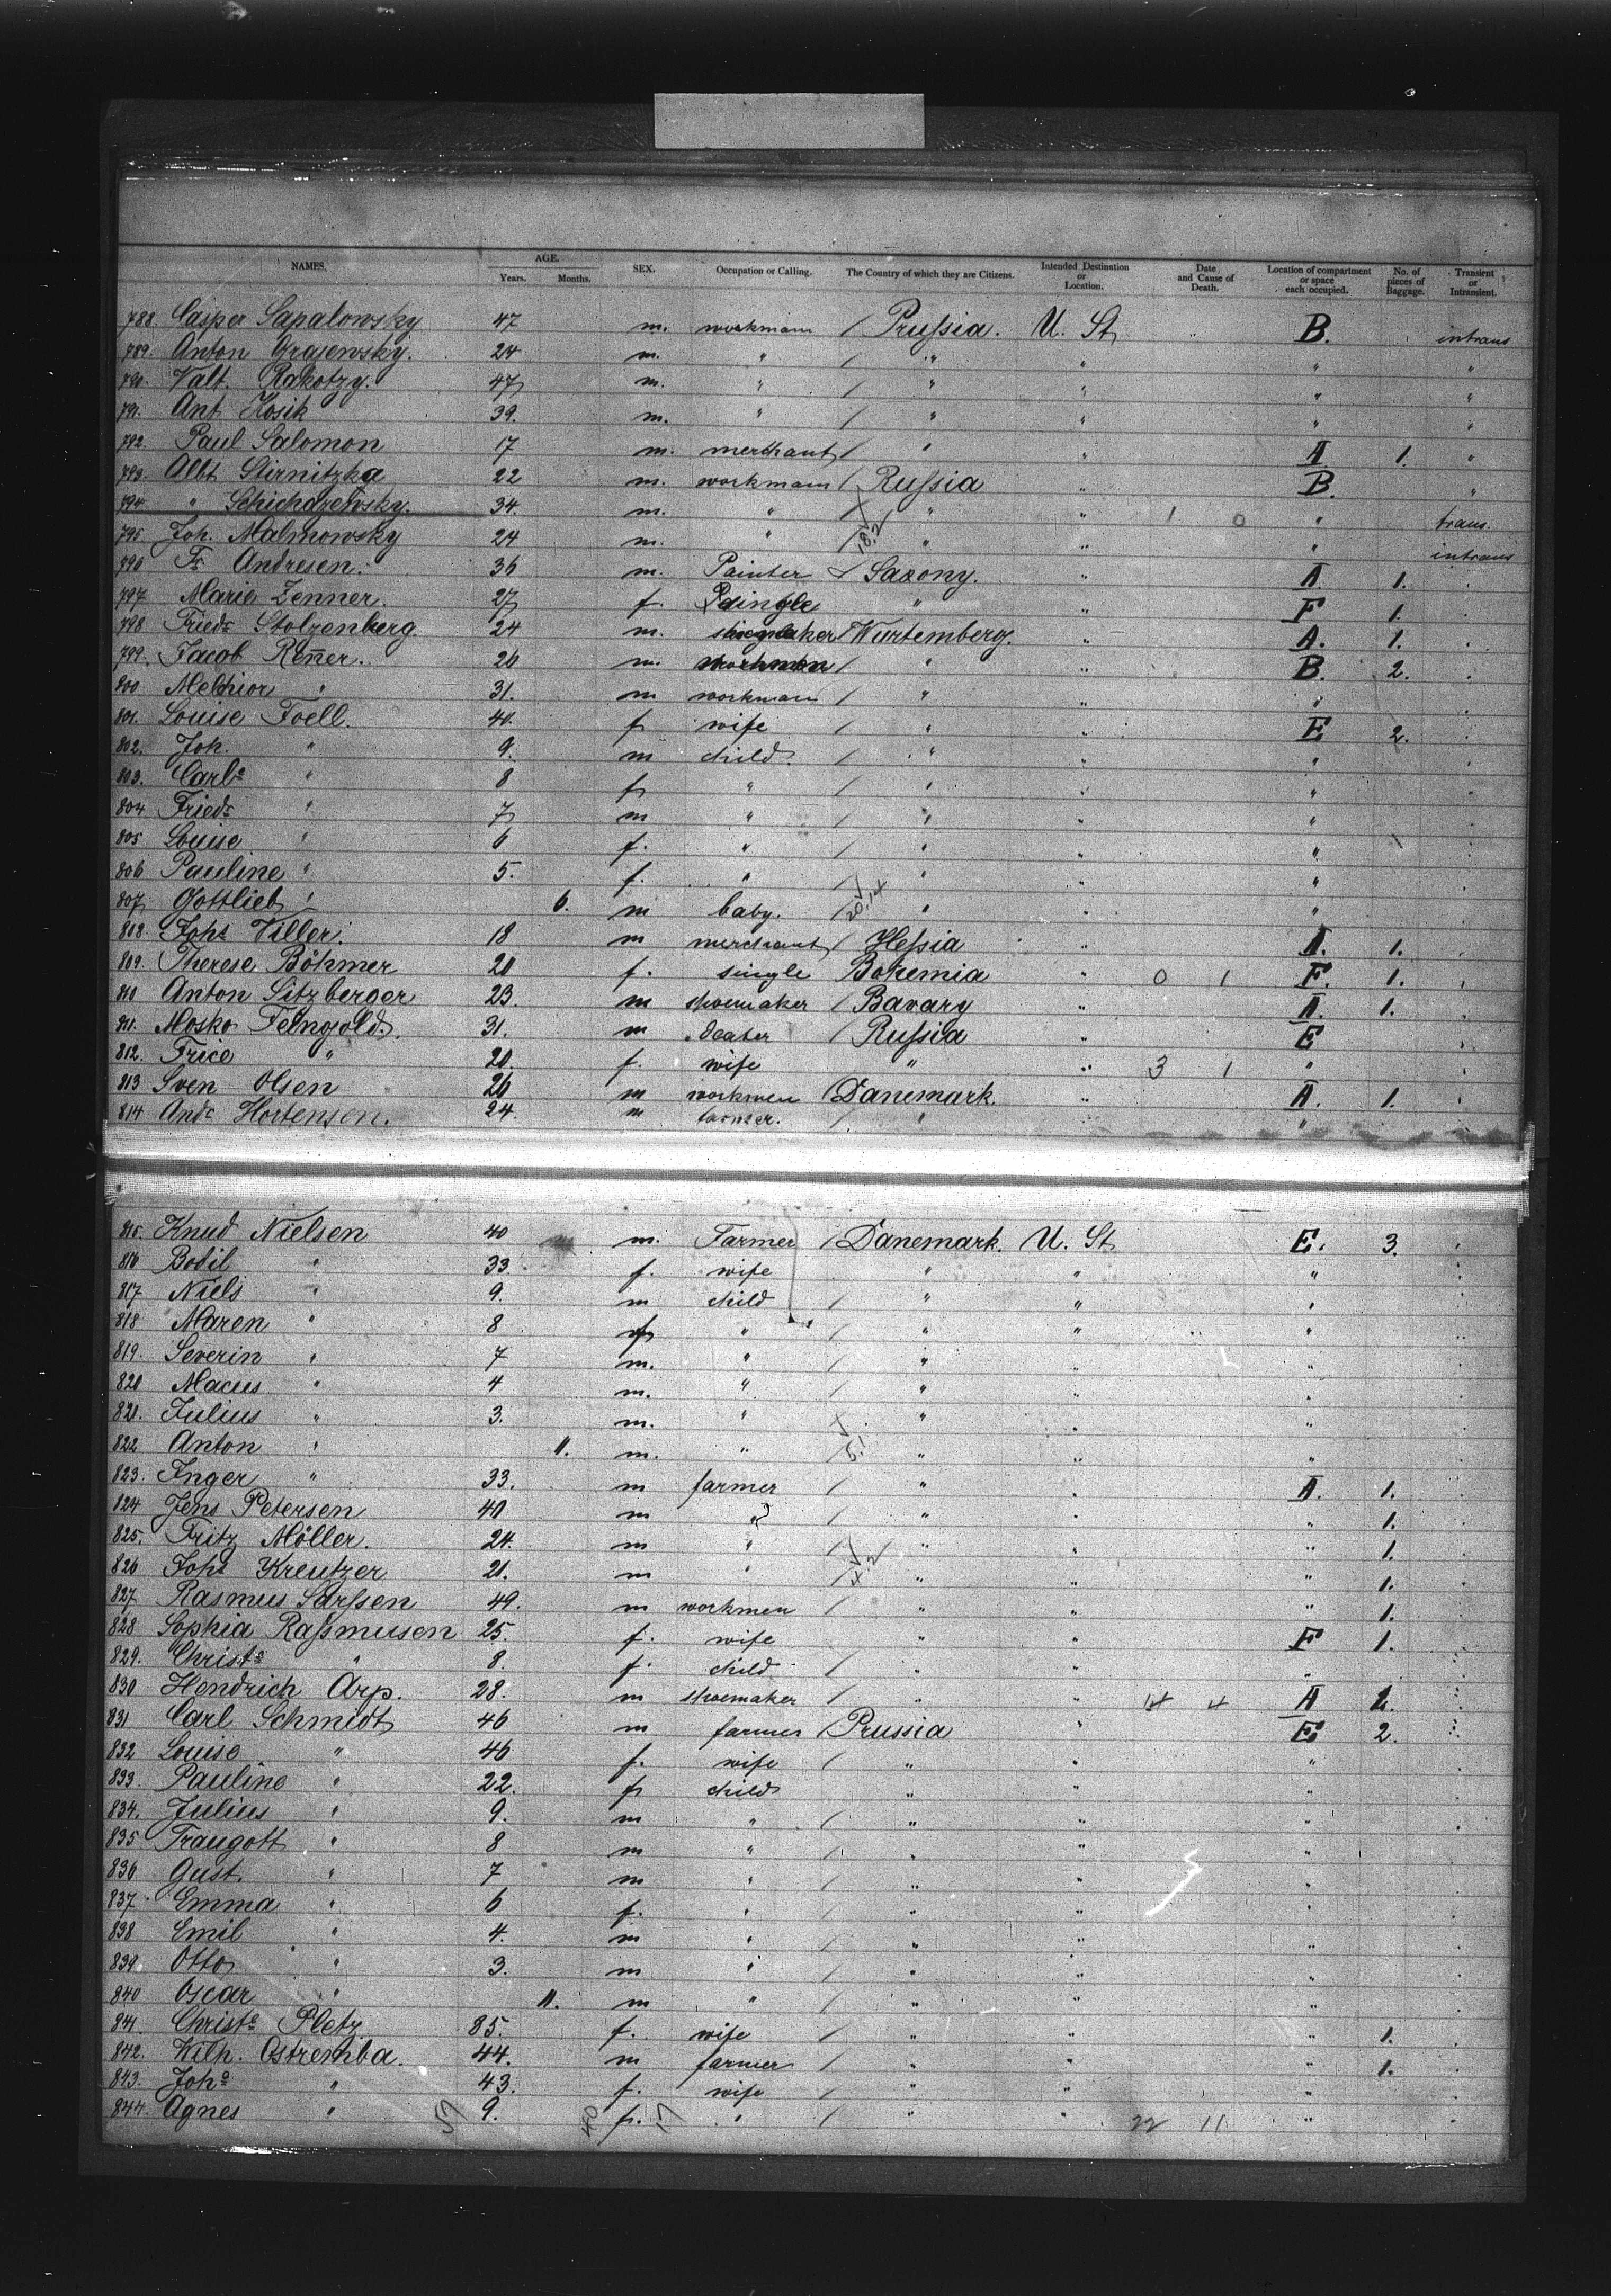 NAMES. AGE. Years. Months. SEX. Occupation or Calling. The Country of which they are Citizens. Intended Destination or Location. Date and Cause of Death. Location of compartment or space each occupied. No. of pieces of Baggage. Transient or Intransient.
788. Casper Sapalowsky 47 m. workman / Prussia. U. St. B. intrans
789. Anton Grajewsky. 24 m. " / " " " "
790. Valt. Rakotzy. 47 m. " / " " " "
791. Ant. Kosik 39. m. " / " " " "
792. Paul Salomon 17 m. merchant / " " A 1. "
793. Albt. Stirnitzka 22 m. workman / Russia " B. "
794 " Schicharewsky. 34. m. " / " " 1 0 " trans.
795. Joh. Malinowsky 24 m. " / 18.2 " " " intrans
796 Fr. Andresen. 36 m. Painter / Saxony. " A 1. "
797 Marie Zenner. 27 f. single " " F 1. "
798 Friedr. Stolzenberg. 24 m. shoemaker / Wurtemberg. " A. 1. "
799. Jacob Reñer. 26 m. workman / " " B. 2. "
800 Melchior " 31. m workman / " " " "
801. Louise Foell. 40. f wife / " " E 2. "
802. Joh. " 9. m child. / " " " "
803. Carle " 8 f " / " " " "
804 Friedr " 7 m " / " " " "
805 Louise " 6 f. " / " " " "
806 Pauline " 5. f. " / " " " "
807 Gottlieb " 6. m baby. / 20.14 " " " "
808. Johs Viller. 18 m merchant / Hessia " A. 1. "
809. Therese Böhmer 20 f. single Bohemia " 0 1 F. 1. "
810 Anton Sitzberger 23. m shoemaker / Bavary " A. 1. "
811. Mosko Feingold. 31. m dealer / Russia " E "
812. Frice " 20. f. wife " " 3 1 " "
813 Sven Olsen 26 m workmen / Danemark. " A. 1. "
814 Andr. Hortensen. 24. m farmer. / " " " "
815. Knud Nielsen 40 m. Farmer / Danemark. U. St. E. 3. "
816 Bodil " 33 f. wife " " " "
817 Niels " 9. m child / " " " "
818 Maren " 8 f " / " " " "
819. Severin " 7 m. " / " " " "
820 Macus " 4 m. " / " " " "
821. Julius " 3. m. " / " " " "
822 Anton " 11. m. " / 5.1 " " " "
823. Inger " 33. m farmer / " " A. 1. "
824 Jens Petersen 40 m " / " " " 1. "
825. Fritz Möller. 24. m " / " " " 1. "
826 Johs Kreutzer 21. m " / 4.2 " " " 1. "
827. Rasmus Larssen 49. m workmen / " " " 1. "
828 Sophia Rassmusen 25. f. wife " " F 1. "
829. Christe " 8. f. child / " " " "
830 Hendrich Arp. 28. m shoemaker / " " 14 4 A 1. "
831 Carl Schmidt 46 m farmer / Prussia " E 2. "
832 Louise " 46 f. wife / " " " "
833. Pauline " 22. f child " " " "
834. Julius " 9. m " / " " " "
835 Traugott " 8 m " / " " " "
836 Gust. " 7 m " / " " " "
837 Emma " 6 f. " / " " " "
838 Emil " 4. m " / " " " "
839. Otto " 3. m " / " " " "
840 Oscar " 11. m " / " " " "
841. Christe Pletz 85. f. wife / " " " 1. "
842. Wilh. Ostremba. 44. m farmer / " " " 1. "
843. Johe " 43. f. wife / " " " "
844. Agnes " 9. f. " / " " 22 11 " "
57 40 17